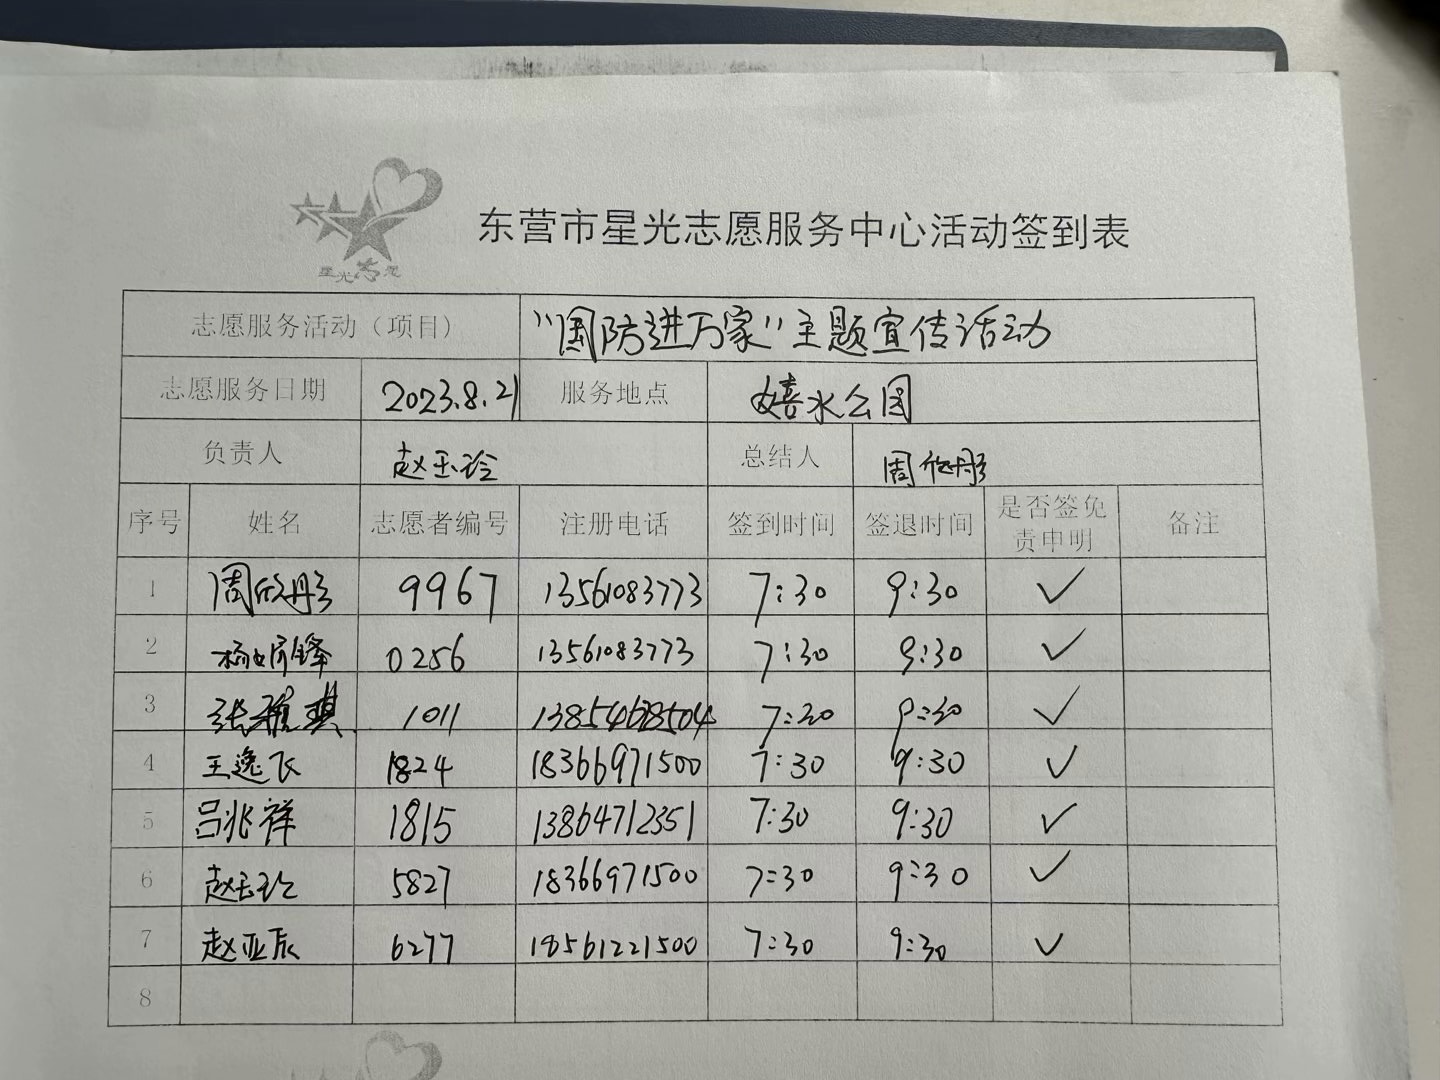 星光志愿
东营市星光志愿服务中心活动签到表
志愿服务活动（项目） “国防进万家”主题宣传活动
志愿服务日期 2023.8.21 服务地点 嬉水公园
负责人 赵玉玲 总结人 周欣彤
序号 姓名 志愿者编号 注册电话 签到时间 签退时间 是否签免责申明 备注
1 周欣彤 9967 13561083773 7:30 9:30 ✓
2 0256 13561083773 7:30 9:30 ✓
3 张雅琪 1011 13854628504 7:30 9:30 ✓
4 王逸飞 1824 18366971500 7:30 9:30 ✓
5 吕兆祥 1815 13864712351 7:30 9:30 ✓
6 赵玉玲 5827 18366971500 7:30 9:30 ✓
7 赵亚辰 6277 18561221500 7:30 9:30 ✓
8